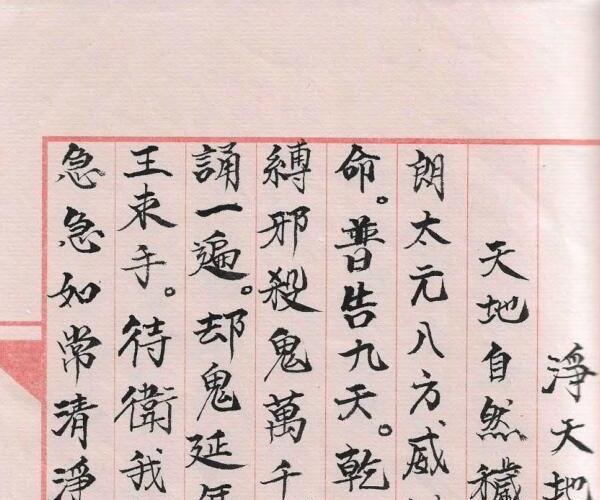 淨天地
天地自然穢
朗太元八方威
命。普告九天。乾
縛邪殺鬼萬千
誦一遍。却鬼延年
王束手。待衛我
急急如常清淨